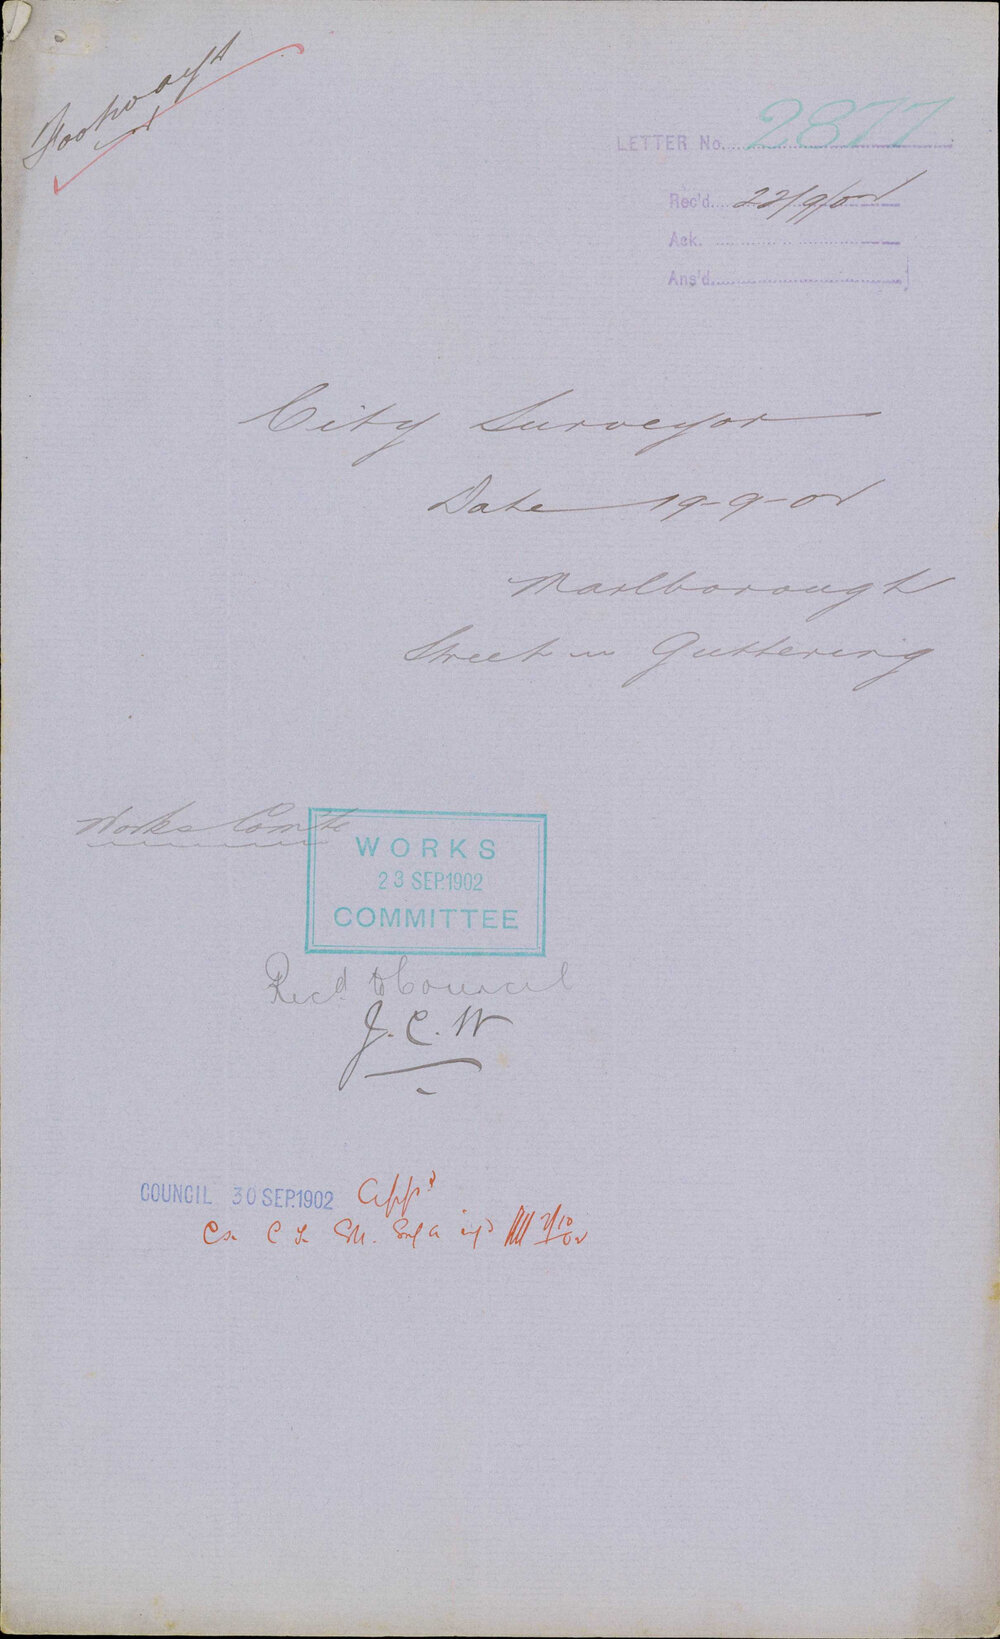 Footways
LETTER No. 2877
Rec'd. 22/9/02
Ack.
Ans'd.
City Surveyor
Date 19-9-02
Marlborough
Street re Guttering
Works Comte
WORKS
23 SEP.1902
COMMITTEE
Recd. to Council
J. C. W
COUNCIL 30 SEP.1902 Appd
2/10/02